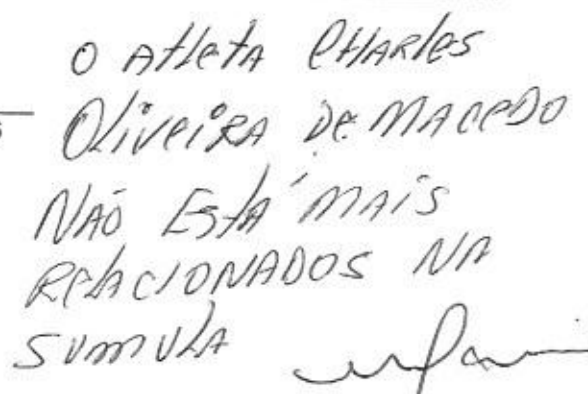 O Atleta CHARles
OliveiRA De MACeDO
NÃO EstÁ MAIS
RelACIONADOS NA
SUMULA